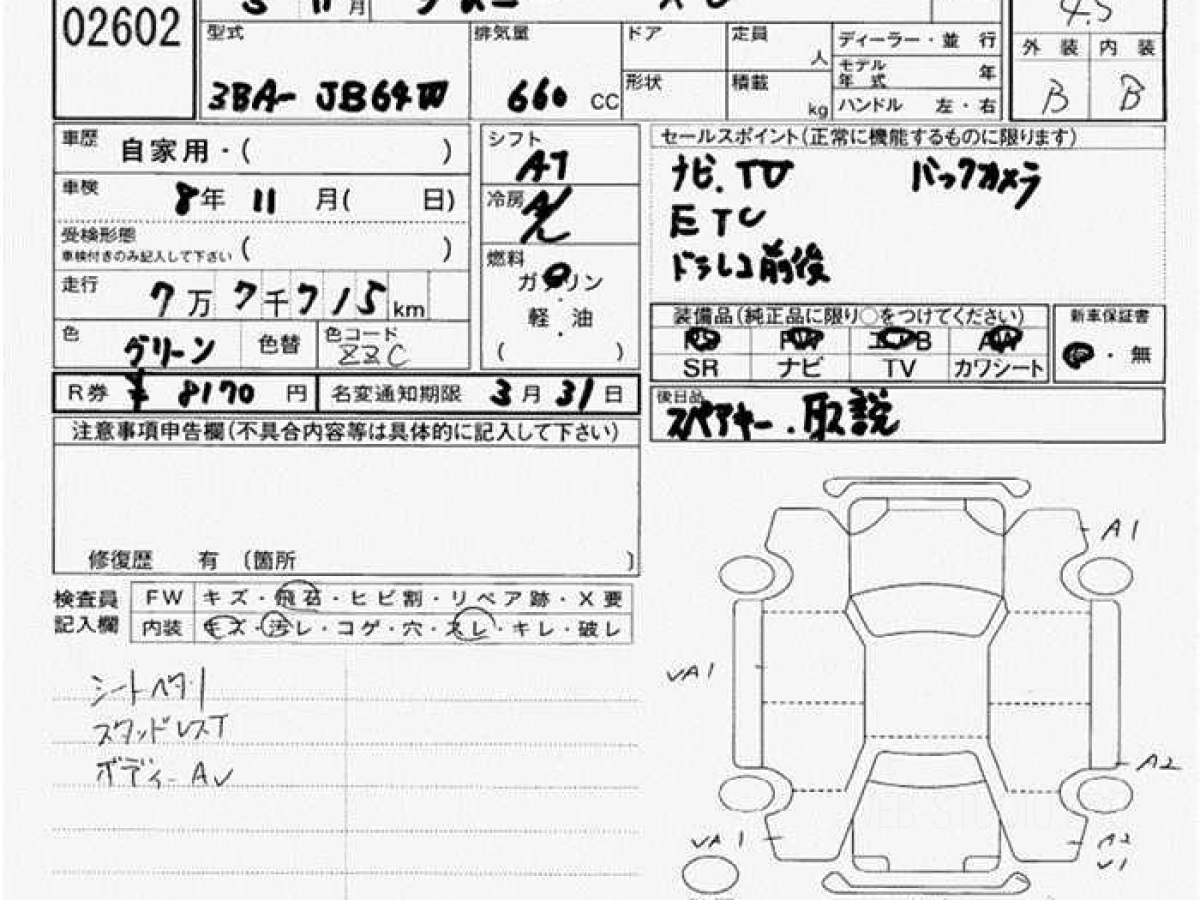 02602
5 11月
4.5
型式 排気量 ドア 定員 人 ディーラー・並 行 外 装 内 装
モデル年式 年
3BA- JB64W 660 CC 形状 積載 kg ハンドル 左・右 B B
車歴 自家用・( )
シフト AT
セールスポイント(正常に機能するものに限ります)
ナビ.TV バックカメラ
車検 8年 11 月( 日)
冷房 A/C
ETC
受検形態 ( )
車検付きのみ記入して下さい
燃料
ガソリン
ドラレコ前後
走行 7万 7千715km
軽 油
( )
装備品(純正品に限り○をつけてください) 新車保証書
PS PW エアB AW 有・無
SR ナビ TV カワシート
色 グリーン 色替 色コード ZZC
R券 ¥ 8170 円 名変通知期限 3月 31日
後日品
スペアキー.取説
注意事項申告欄(不具合内容等は具体的に記入して下さい)
修復歴 有 〔箇所 〕
検査員記入欄
FW キズ・飛石・ヒビ割・リペア跡・X要
内装 キズ・汚レ・コゲ・穴・スレ・キレ・破レ
シートヘタリ
スタッドレスT
ボディーAV
A1
VA1
A2
VA1
A2
V1